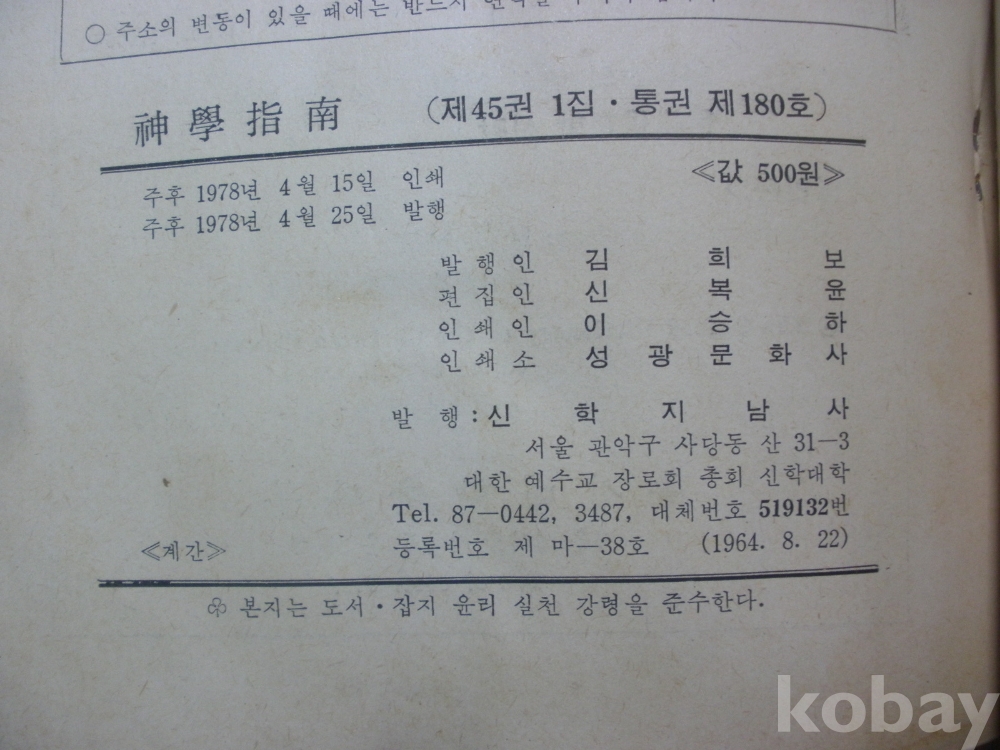 ○ 주소의 변동이 있을 때에는 반드시
神學指南 (제45권 1집 · 통권 제180호)
주후 1978년 4월 15일 인쇄 ≪값 500원≫
주후 1978년 4월 25일 발행
발행인 김희보
편집인 신복윤
인쇄인 이승하
인쇄소 성광문화사
발행 : 신학지남사
서울 관악구 사당동 산 31—3
대한 예수교 장로회 총회 신학대학
Tel. 87—0442, 3487, 대체번호 519132번
≪계간≫ 등록번호 제 마—38호 (1964. 8. 22)
♧ 본지는 도서 · 잡지 윤리 실천 강령을 준수한다.
kobay